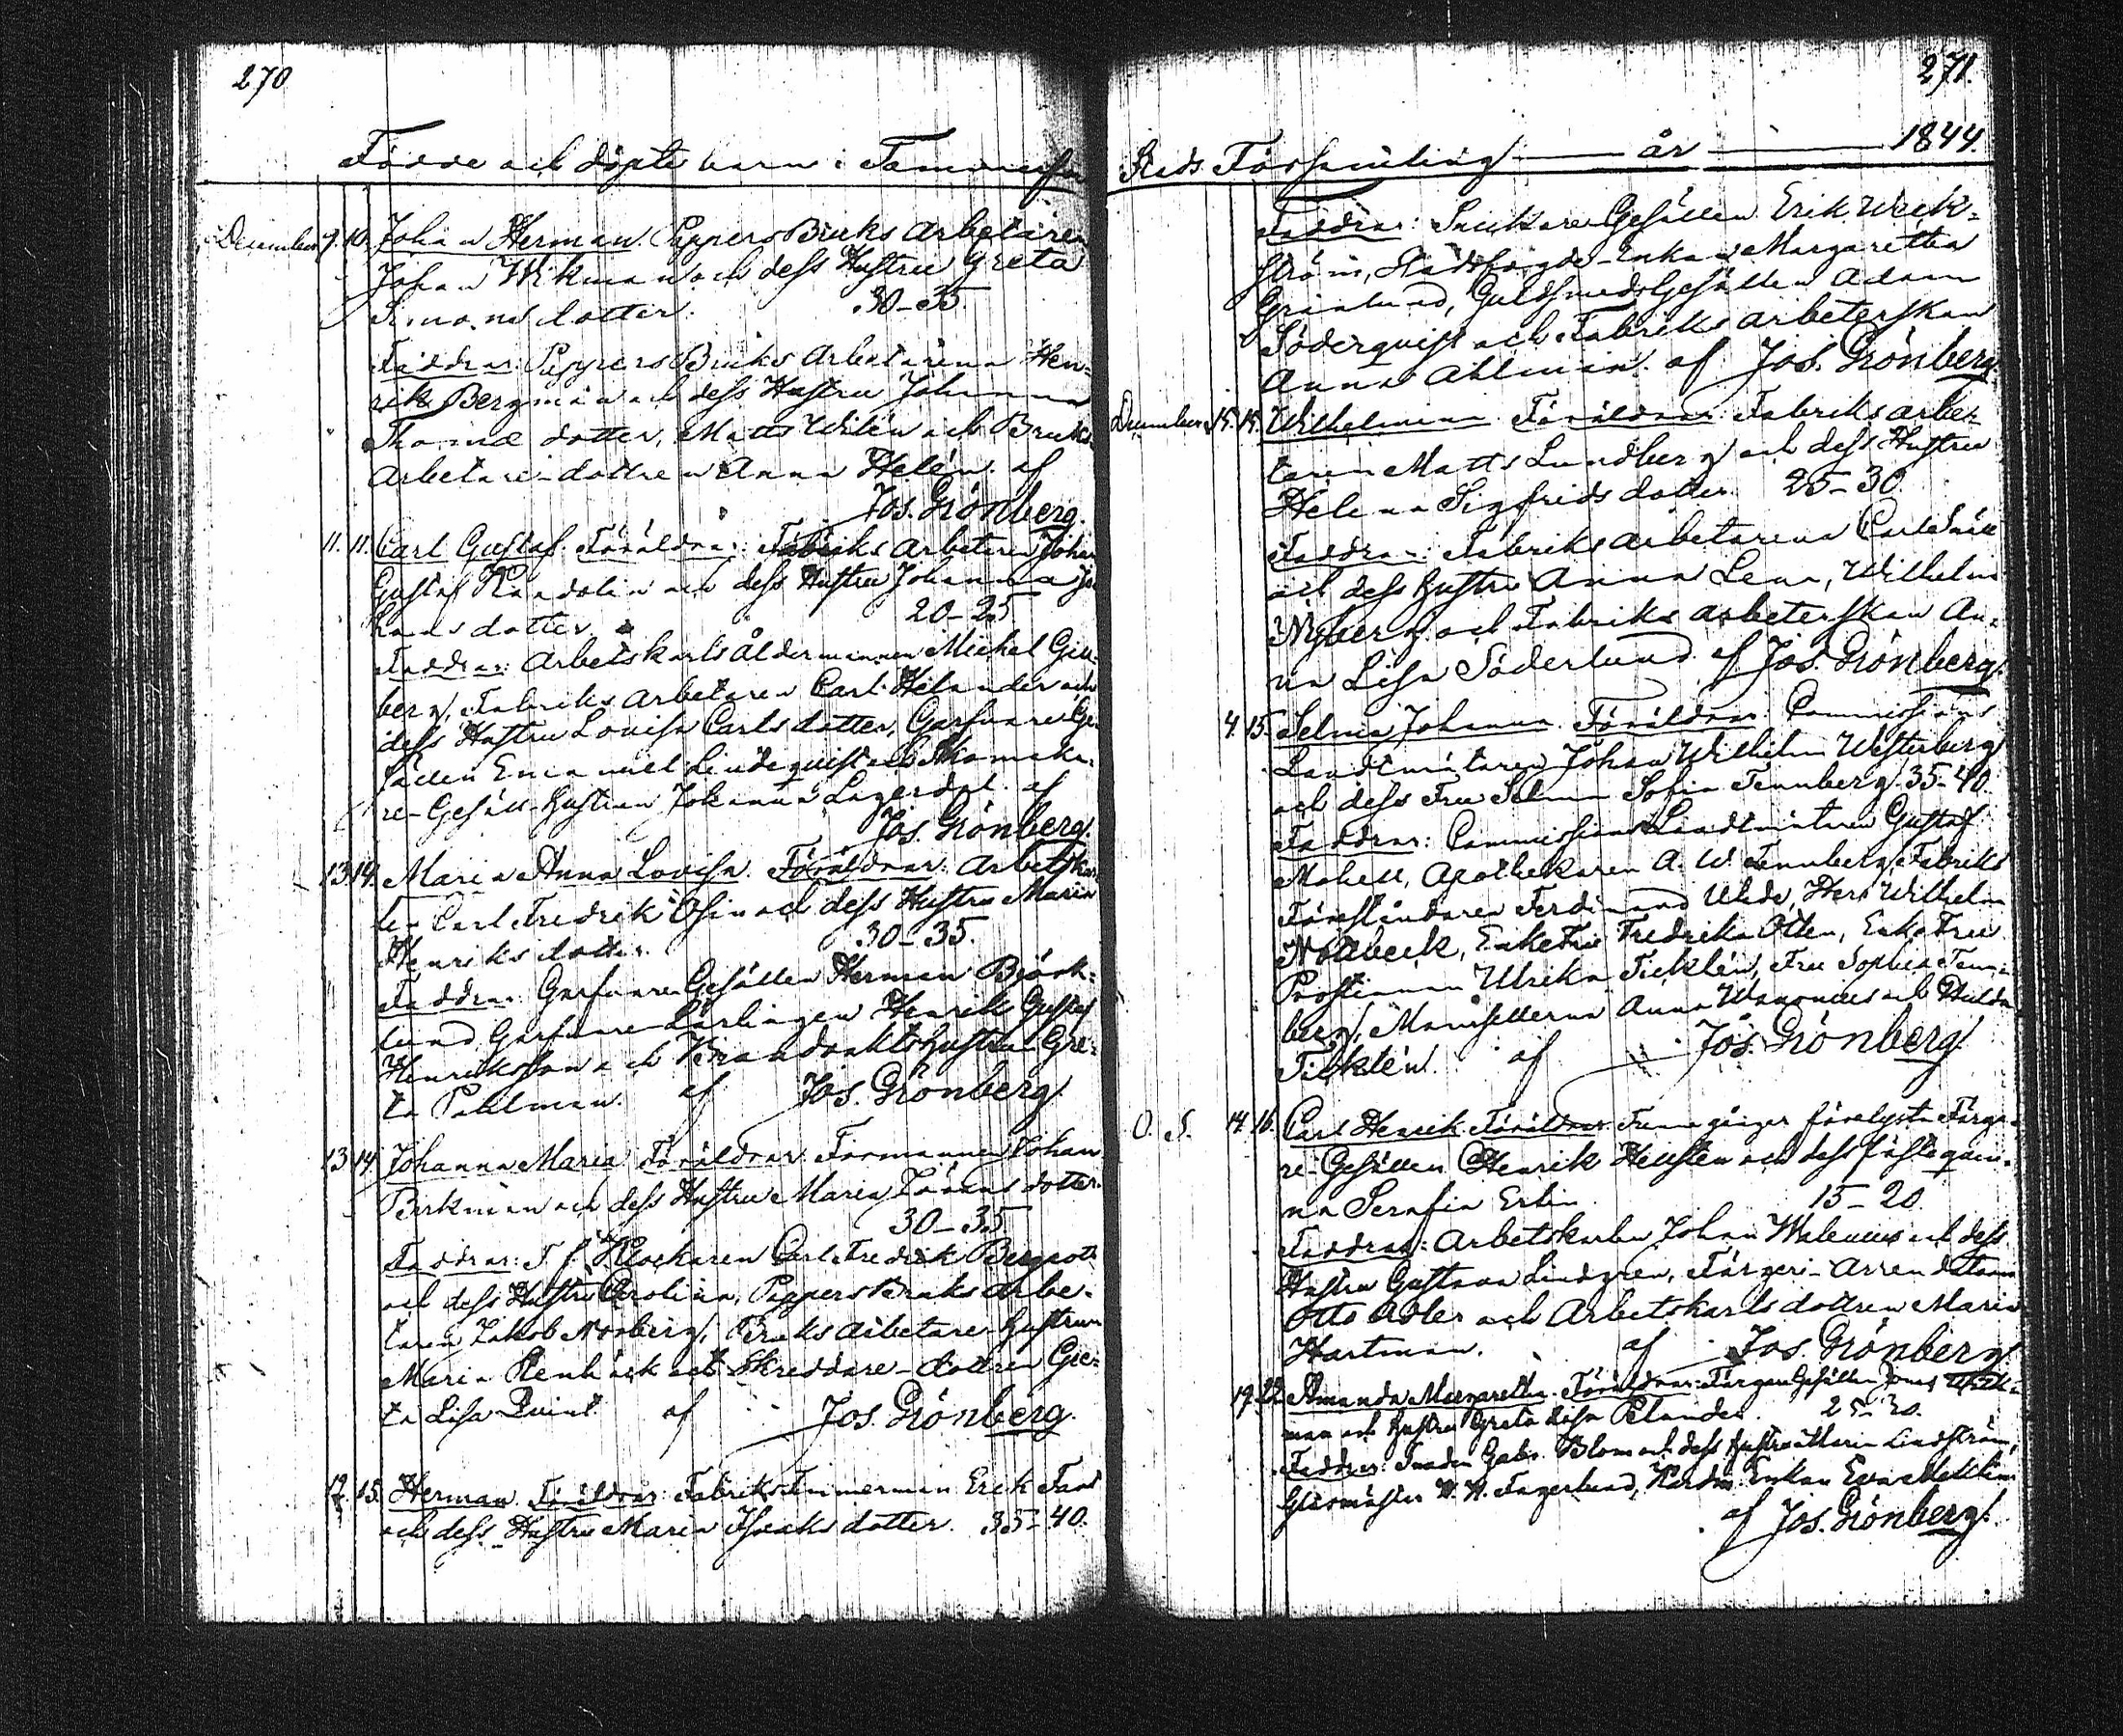 270
Födde och döpte barn i Tammerfors
December 9. 10. Johan Herman. Pappers Bruks Arbetaren
Johan Wikman och dess Hustru Greta
Simons dotter. 30-35.
Faddrar: Pappers Bruks Arbetarena Hen-
rik Bergman och dess Hustru Johanna
Thomæ dotter, Matts Wilén och Bruks
Arbetare-dottren Anna Helén. af
Jos. Grönberg.
11. 11. Carl Gustaf. Föräldrar: Fabriks Arbetaren Johan
Gustaf Randolin och dess Hustru Johanna Jo-
hans dotter 20-25
Faddrar: Arbetskarls åldermannen Michel
berg, Fabriks Arbetaren Carl Helander och
dess Hustru Lovisa Carls dotter, Garfvare Ge-
sällen Emanuel Lindequist och Skomaka-
re-Gesäll-Hustrun Johanna Lagerdal. af
Jos. Grönberg.
13 14. Maria Anna Lovisa. Föräldrar: Arbetskar-
len Carl Fredrik och dess Hustru Maria
Henriks dotter. 30-35.
Faddrar: Garfvare Gesällen Herman Björk-
lund, Garfvare Lärlingen Henrik Gustaf
Henriksson och Brandvaktshustrun Gre-
ta Pahlman. af Jos. Grönberg
13 14. Johanna Maria Föräldrar Formannen Johan
Birkman och dess Hustru Maria Görans dotter.
30-35
Faddrar: T. f. Klockaren Carl Fredrik Bergroth
och dess Hustru Carolina, Pappers Bruks Arbe-
taren Jakob Norberg, Bruks Arbetare Hustrun
Maria Renbäck och Skreddare-dottren Gre-
ta Lisa Quint af Jos. Grönberg.
12. 15. Herman. Föräldrar: Fabriks Timmerman Erik
och dess Hustru Maria Isaks dotter. 35-40.
271.
Stads Församling år 1844.
Faddrar: Snickare Gesällen Erik Weck-
ström, Stadsfogde-Enkan Margaretha
Grönlund, Guldsmeds Gesällen Adam
Söderquist och Fabriks arbeterskan
Anna Ahlman. af Jos. Grönberg.
December 15. 15. Wilhelmina. Föräldrar: Fabriks arbe-
taren Matts Lundberg och dess Hustru
Helena Sigfrids dotter. 25-30
Faddrar: Fabriks arbetarena Carl
och dess Hustru Anna Lena, Wilhelm
Nyberg och Fabriks arbeterskan An-
na Lisa Söderlund. af Jos. Grönberg.
4. 15. Selma Johanna. Föräldrar: Commissions
Landtmätaren Johan Wilhelm Westerberg
och dess Fru Selma Sofia Tennberg. 35-40.
Faddrar: Commissions Landtmätaren Gustaf
Mohell, Apothekaren A. W. Tennberg, Fabriks
Föreståndaren Ferdinand Uhde, Herr Wilhelm
Nottbeck, Enke Fru Fredrika Otten, Enke Fru
Prostinnan Ulrika Ticklén, Fru Sophia Tenn-
berg, Mamsellerna Anna Wanonius och Hulda
Ticklén. af Jos. Grönberg
O. S. 14. 16. Carl Henrik. Föräldrar: gånger förelyste Färga-
re-Gesällen Henrik Hellstén och dess fästeqvin-
na Serafia Erlin 15-20.
Faddrar: Arbetskarlen Johan Walenius och dess
Hustru Gustava Lindgren, Färgeri-Arrendatorn
Otto Adler och Arbetskarls dottren Maria
Hartman. af Jos. Grönberg
19. 22. Amanda Margaretha. Föräldrar: Färgare Gesällen Jonas
man och hustru Greta Lisa Pelander. 25-30.
Faddrar: Gabr. Blom och dess Hustru Maria Lindström,
Glasmäster Fagerlund, Enkan Eva
af Jos. Grönberg.